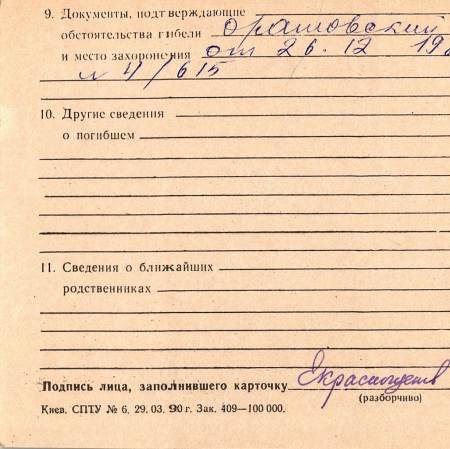 9. Документы, подтверждающие
обстоятельства гибели Оратовский
и место захоронения от 26.12 19
№ 4/615
10. Другие сведения
о погибшем
11. Сведения о ближайших
родственниках
Подпись лица, заполнившего карточку
(разборчиво)
Киев. СПТУ № 6. 29. 03. 90 г. Зак. 409—100 000.